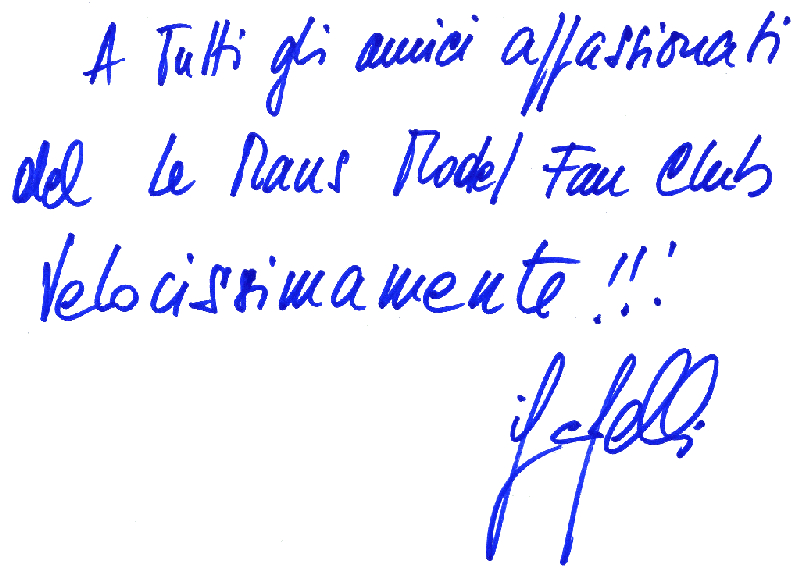 A Tutti gli amici appassionati
del Le Mans Model Fan Club
Velocissimamente !!!